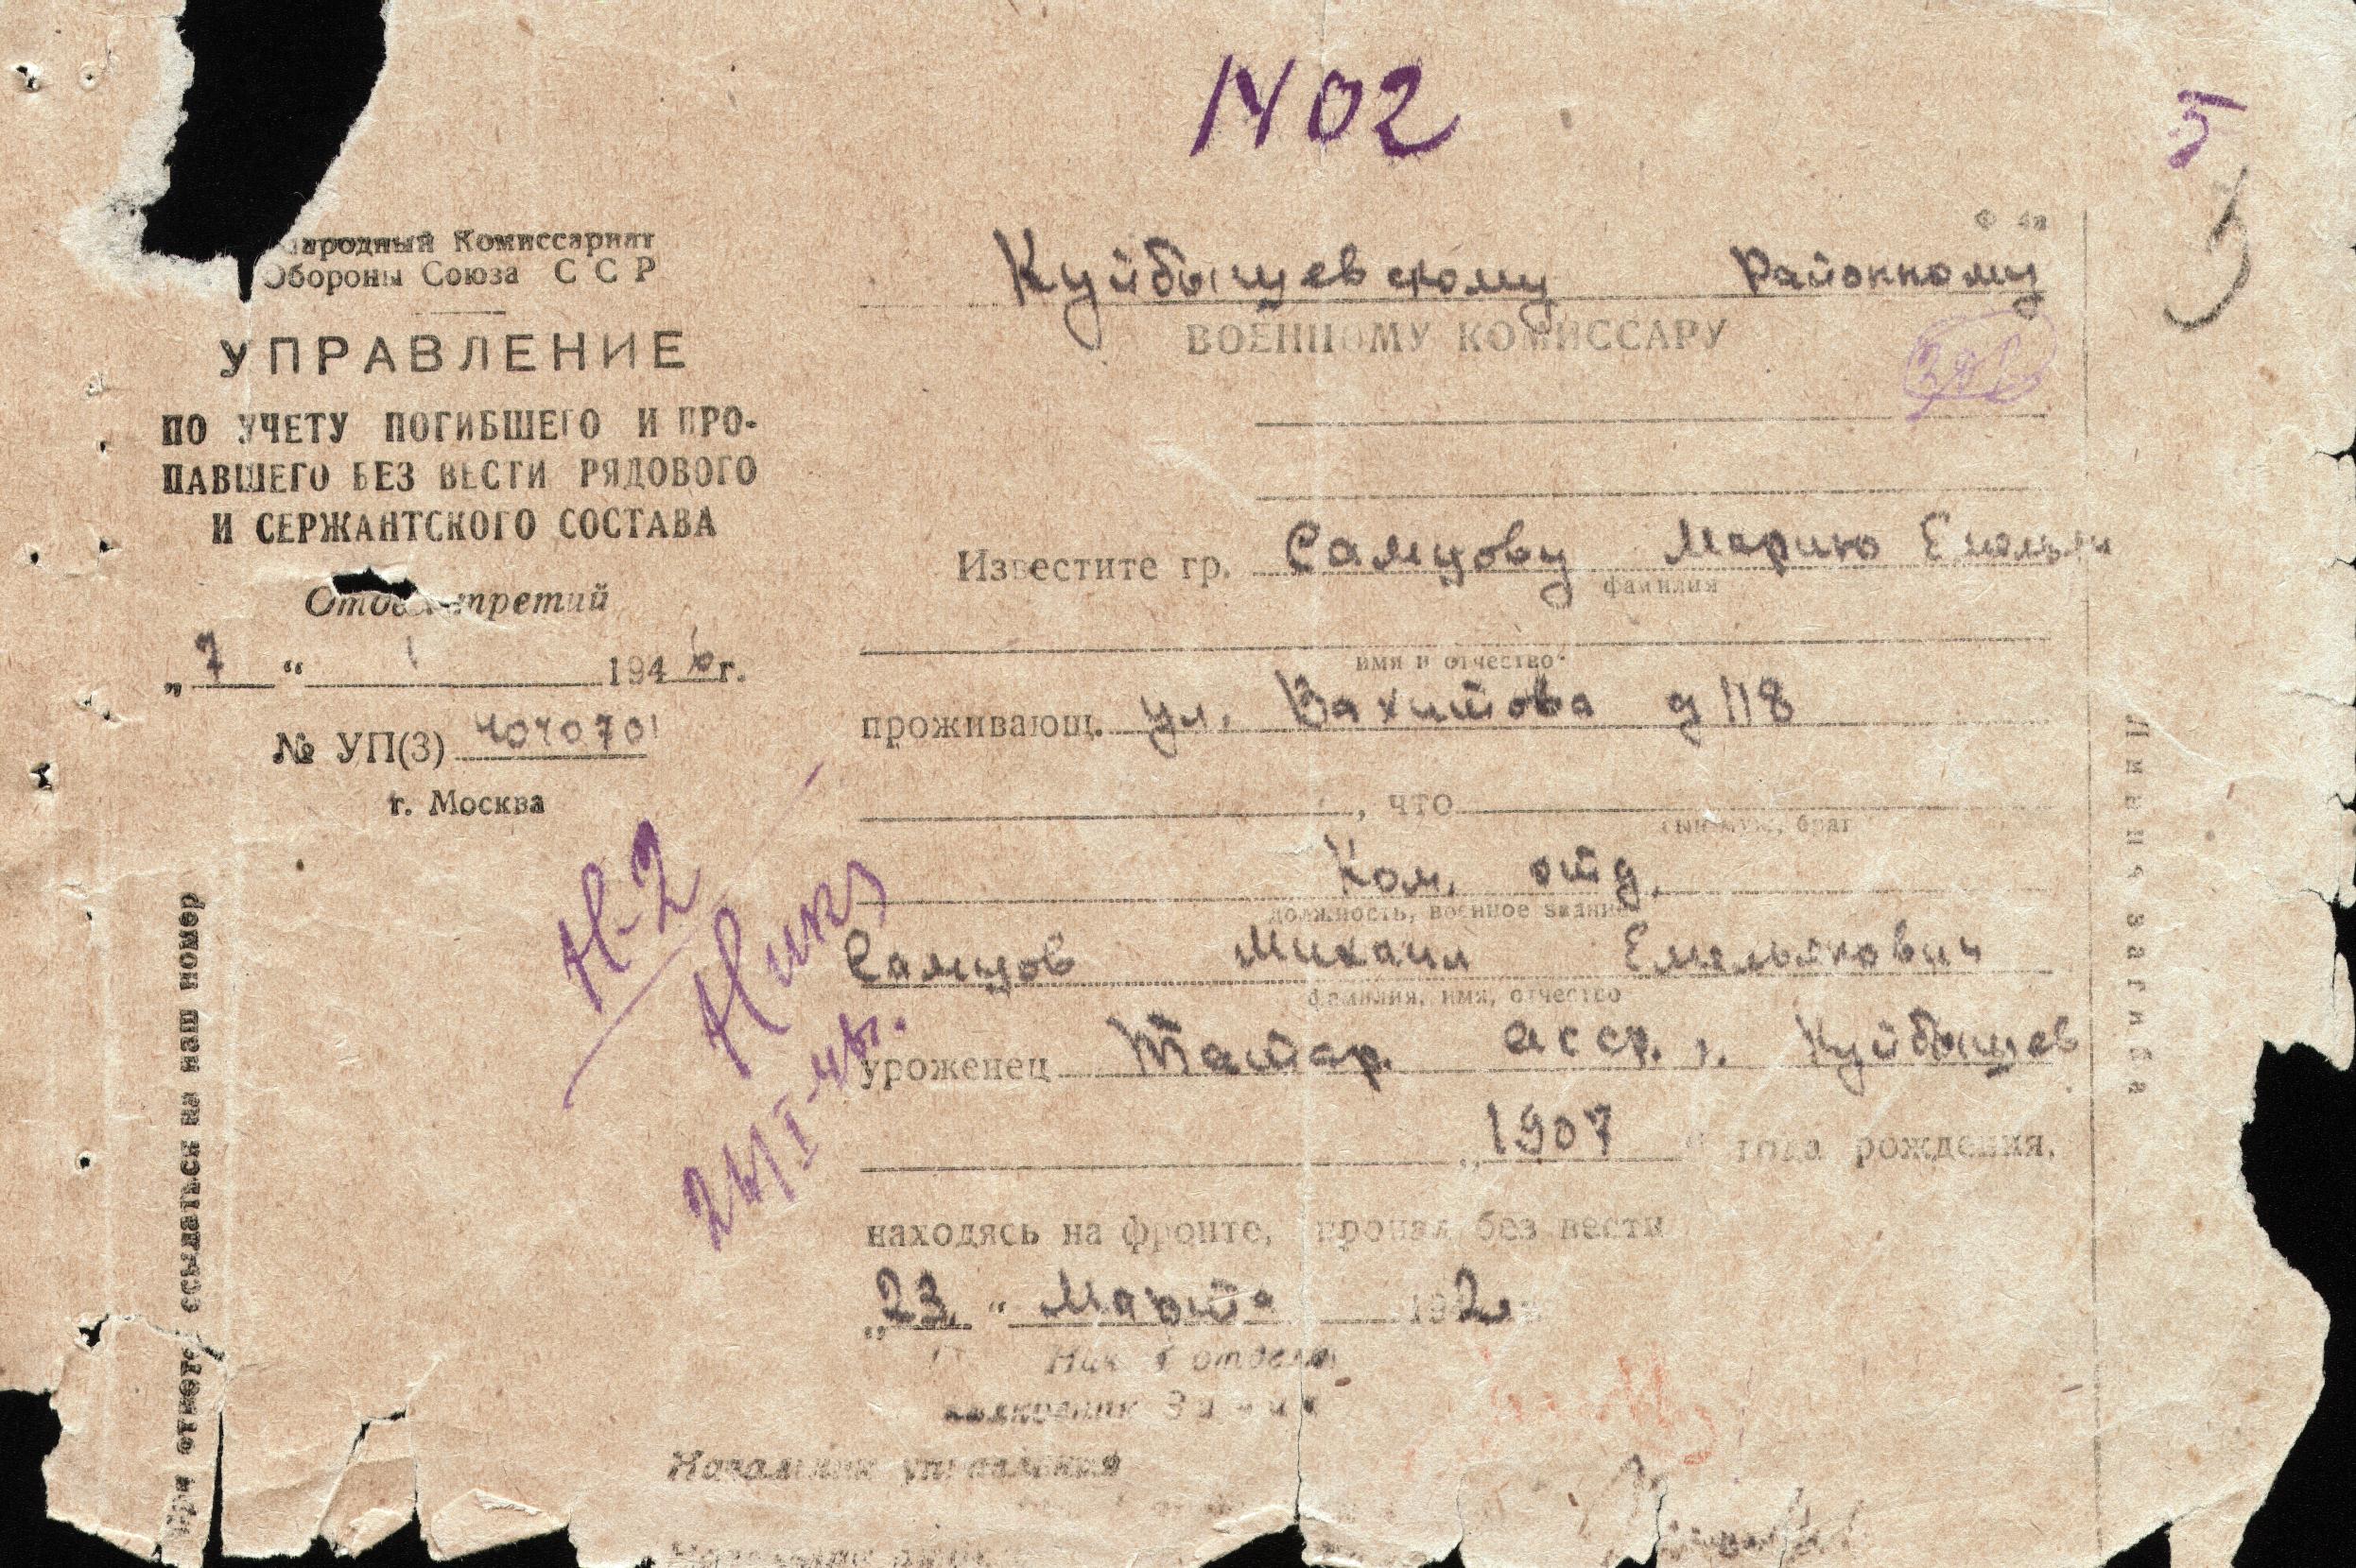 1402
5
Народный Комиссариат
Обороны Союза С С Р
УПРАВЛЕНИЕ
ПО УЧЕТУ ПОГИБШЕГО И ПРО-
ПАВШЕГО БЕЗ ВЕСТИ РЯДОВОГО
И СЕРЖАНТСКОГО СОСТАВА
Отдел третий
„7“ 1 1946г.
№ УП(3) 4040701
г. Москва
При ответе ссылаться на наш номер
Н-2
24/I-46.
Ф 4а
Куйбышевскому Районному
ВОЕННОМУ КОМИССАРУ
Известите гр. Самцову Марию Емельян
фамилия
имя и отчество
проживающ. ул. Вахитова д 118
, что
сын, муж, брат
Ком. отд.
должность, военное звание
Самцов Михаил Емельянович
фамилия, имя, отчество
уроженец Татар. асср. г. Куйбышев
„1907“ года рождения,
находясь на фронте, пропал без вести
„23“ Марта 1942г
отдела
Начальник управления
Линия загиба